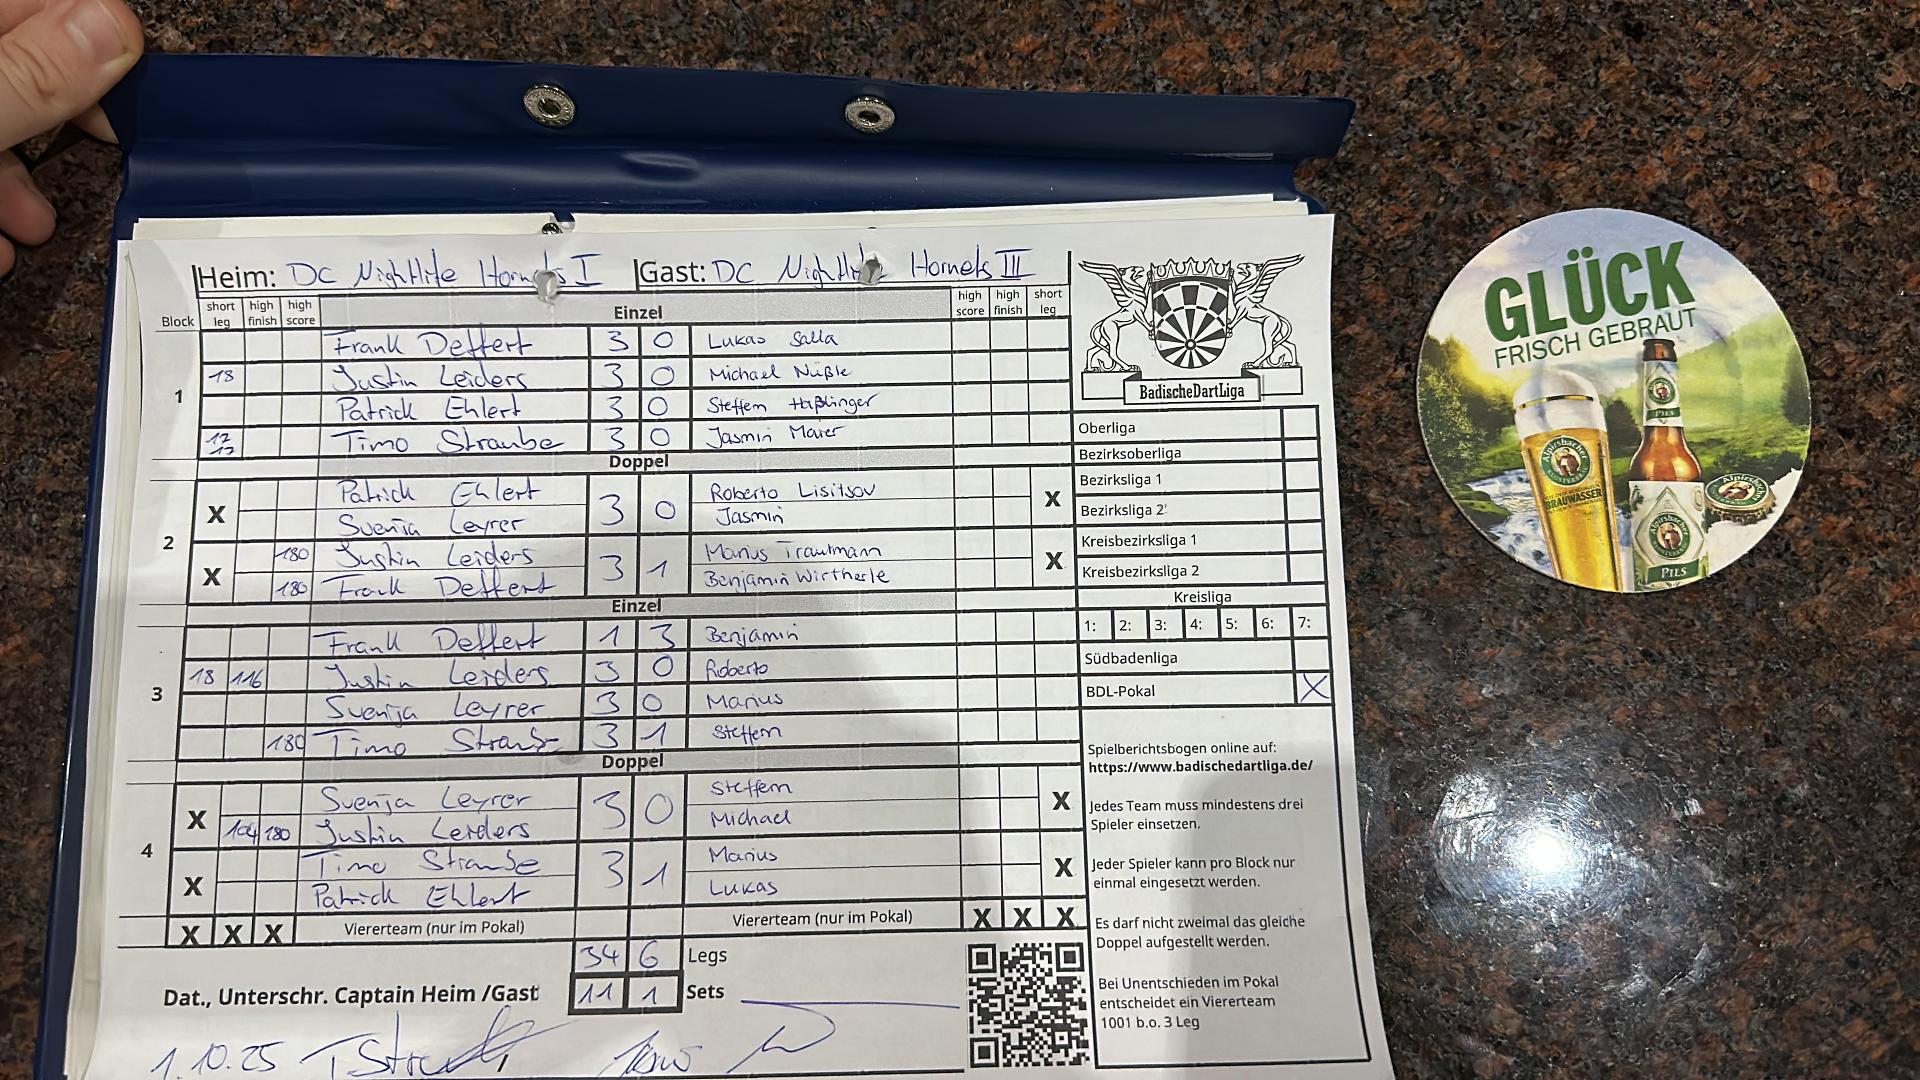 Heim: DC Nightlife Hornets I Gast: DC Nightlife Hornets III
Block short leg high finish high score Einzel high score high finish short leg
1
Frank Deffert 3 0 Lukas Salla
18 Justin Leiders 3 0 Michael Nüßle
Patrick Ehlert 3 0 Steffen Haßlinger
17 17 Timo Straube 3 0 Jasmin Maier
Doppel
2
X Patrick Ehlert 3 0 Roberto Lisitsov X
Svenja Leyrer Jasmin
X 180 Justin Leiders 3 1 Marius Trautmann X
180 Frank Deffert Benjamin Wirtherle
Einzel
3
Frank Deffert 1 3 Benjamin
18 116 Justin Leiders 3 0 Roberto
Svenja Leyrer 3 0 Marius
180 Timo Straube 3 1 Steffen
Doppel
4
X Svenja Leyrer 3 0 Steffen X
104 180 Justin Leiders Michael
X Timo Straube 3 1 Marius X
Patrick Ehlert Lukas
X X X Viererteam (nur im Pokal) Viererteam (nur im Pokal) X X X
34 6 Legs
Dat., Unterschr. Captain Heim /Gast 11 1 Sets
1.10.25
BadischeDartLiga
Oberliga
Bezirksoberliga
Bezirksliga 1
Bezirksliga 2
Kreisbezirksliga 1
Kreisbezirksliga 2
Kreisliga
1: 2: 3: 4: 5: 6: 7:
Südbadenliga
BDL-Pokal X
Spielberichtsbogen online auf:
https://www.badischedartliga.de/
Jedes Team muss mindestens drei
Spieler einsetzen.
Jeder Spieler kann pro Block nur
einmal eingesetzt werden.
Es darf nicht zweimal das gleiche
Doppel aufgestellt werden.
Bei Unentschieden im Pokal
entscheidet ein Viererteam
1001 b.o. 3 Leg
GLÜCK
FRISCH GEBRAUT
PILS
Alpirsbacher
BRAUWASSER
Alpirsbacher
Alpirsbacher
PILS